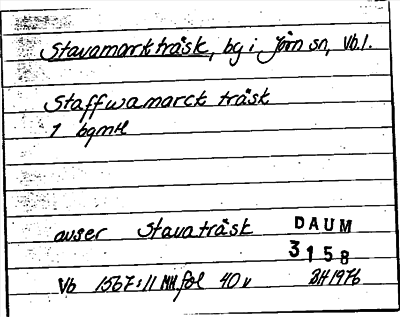 Stavamarkträsk, by i Jörn sn, Vb.l.
Staffwamarck träsk
1 bgmtl
avser Stavaträsk DAUM
3158
Vb 1567:11 MH fol 40 v BH 1976